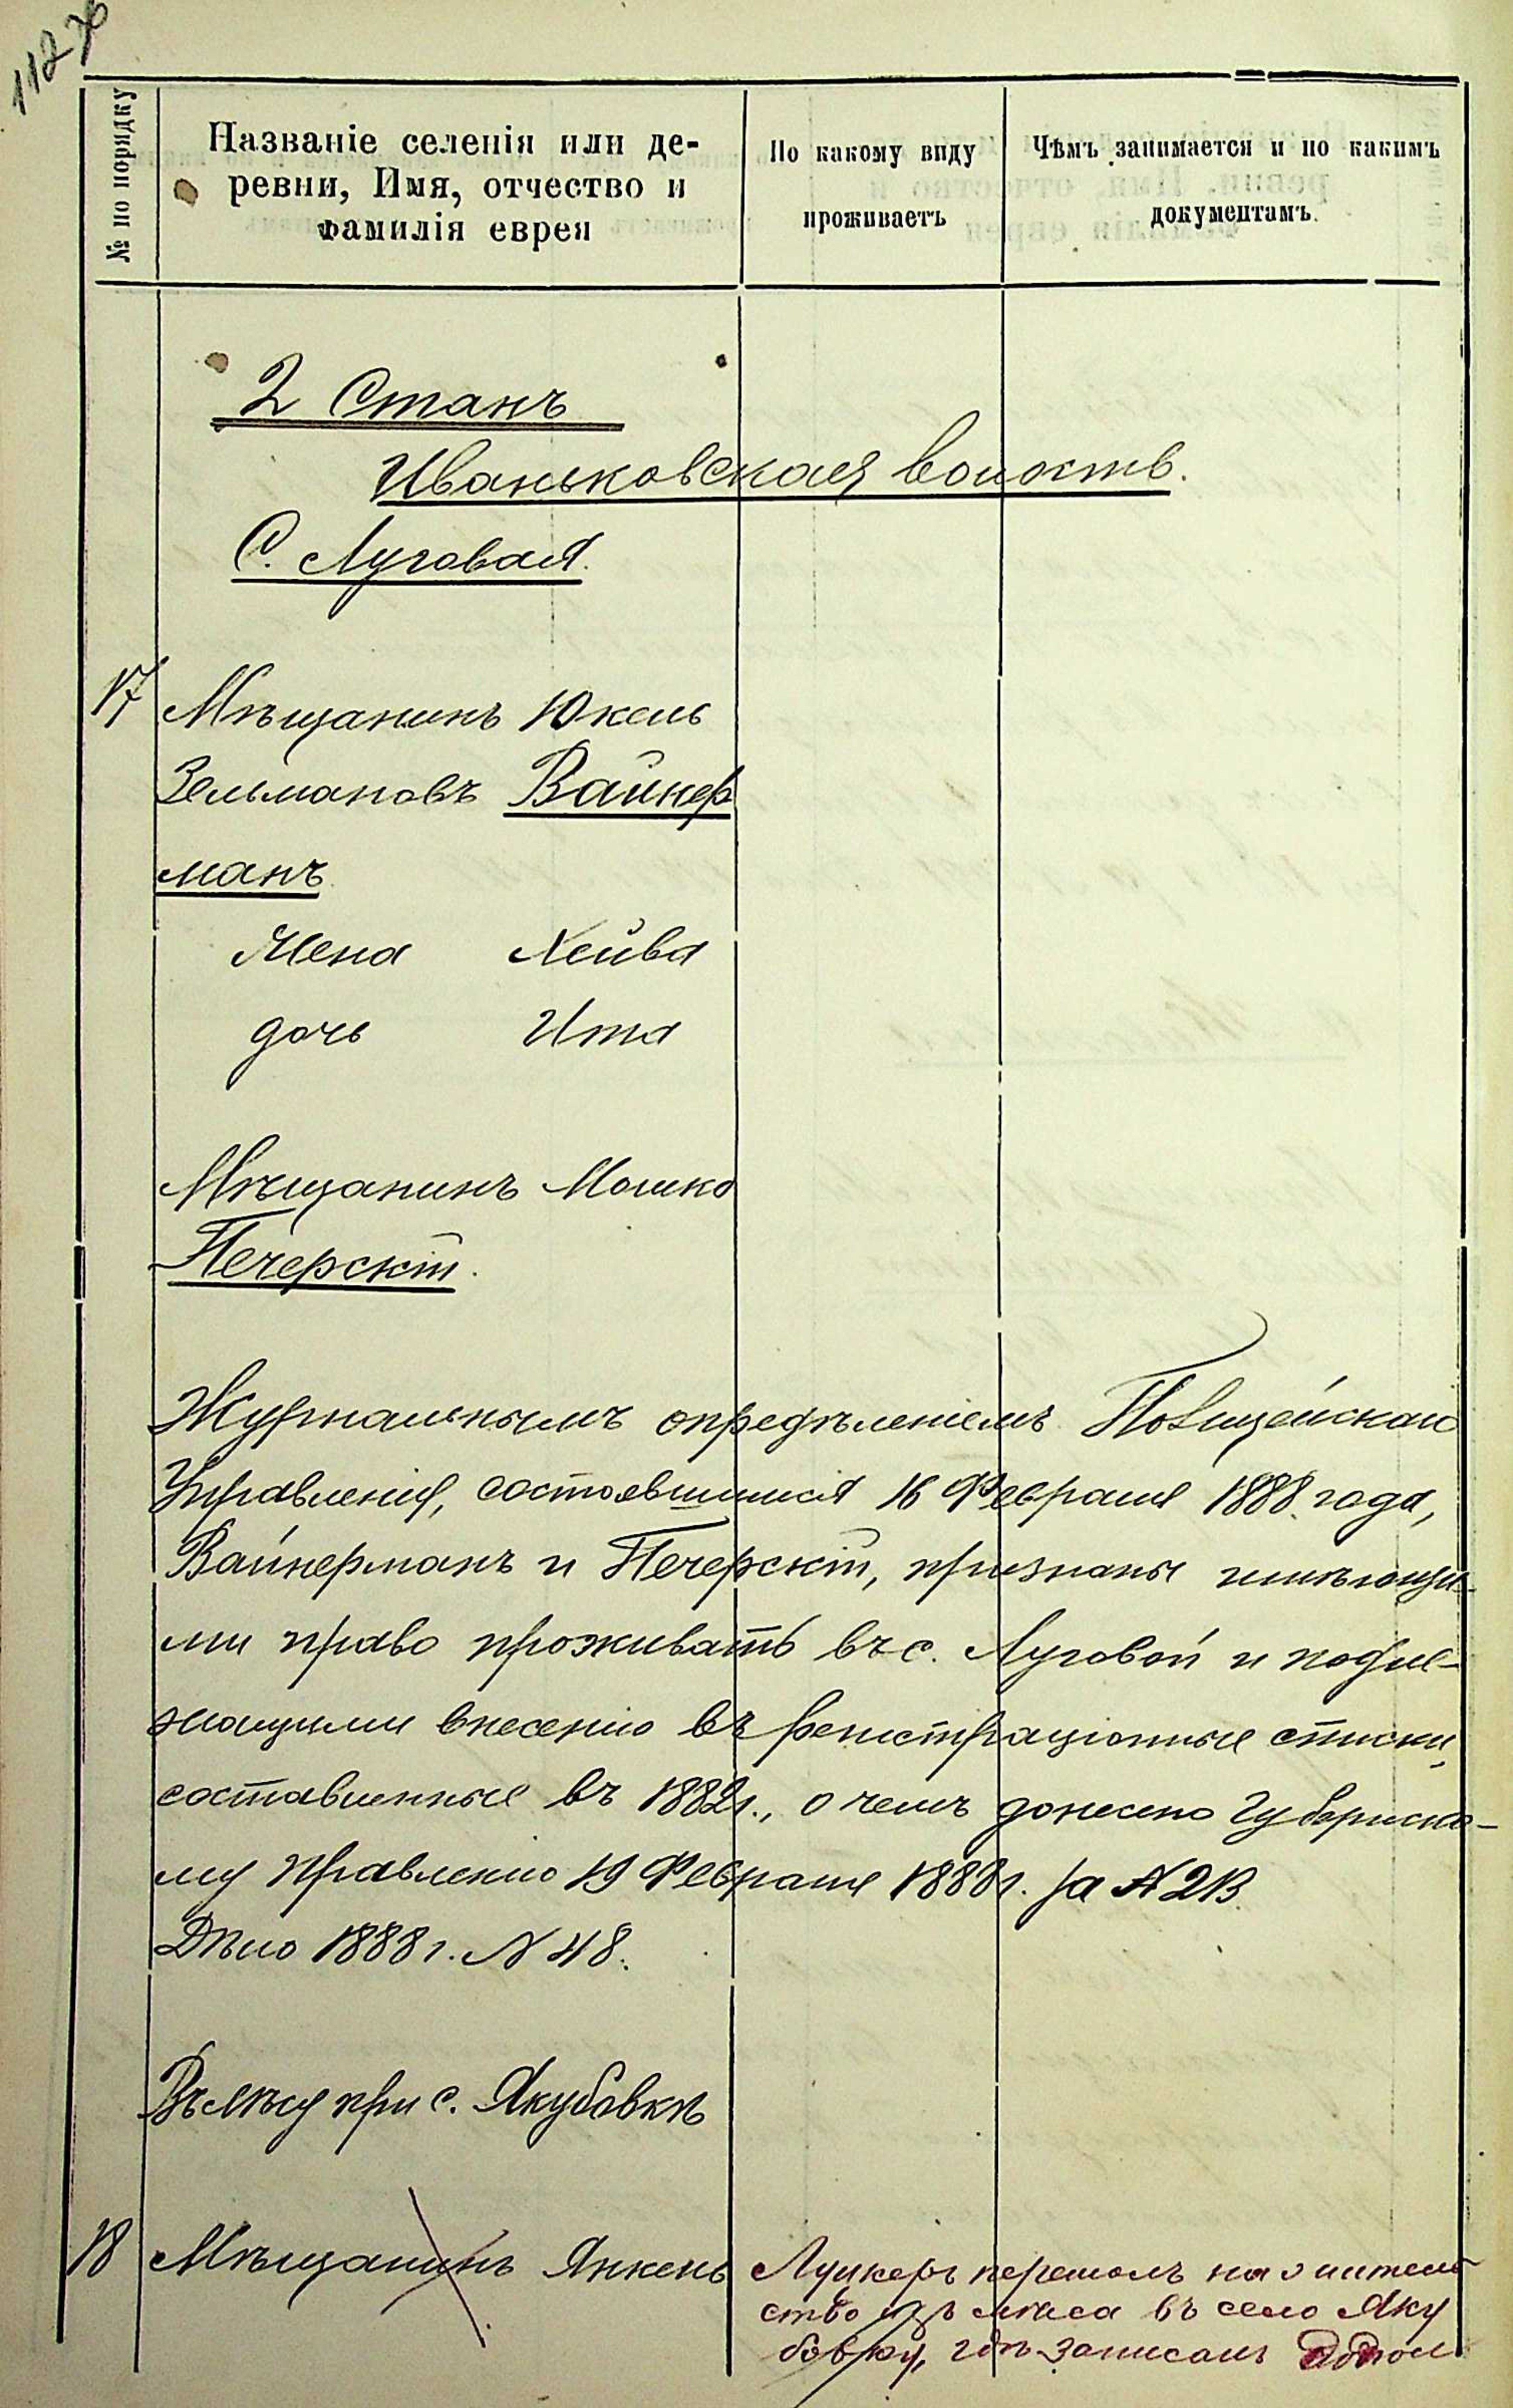 112 76
№ по порядку
Названіе селенія или де-
ревни, Имя, отчество и
фамилія еврея
По какому виду
проживаетъ
Чѣмъ занимается и по какимъ
документамъ.
2 Станъ
Иваньковская волость.
С. Луговая.
17 Мѣщанинъ Юкель
Зельмановъ Вайнер
манъ
Жена Хейва
дочь Ита
Мѣщанинъ Мошко
Печерскій.
Журнальнымъ опредѣленіемъ Полицейскаго
Управленія, состоявшимися 16 Февраля 1888 года,
Вайнерманъ и Печерскій, признаны имѣющи-
ми право проживать въ с. Луговой и подле-
жащими внесенію въ регистраціонные списки,
составленные въ 1882 г., о чемъ донесено Губернско-
му Правленію 19 Февраля 1888 г. за № 213.
Дѣло 1888 г. № 48.
Въ лѣсу при с. Якубовкѣ
18 Мѣщанинъ Янкель
перешолъ на жител
ство изъ лѣса въ село Яку
бовку, гдѣ записанъ